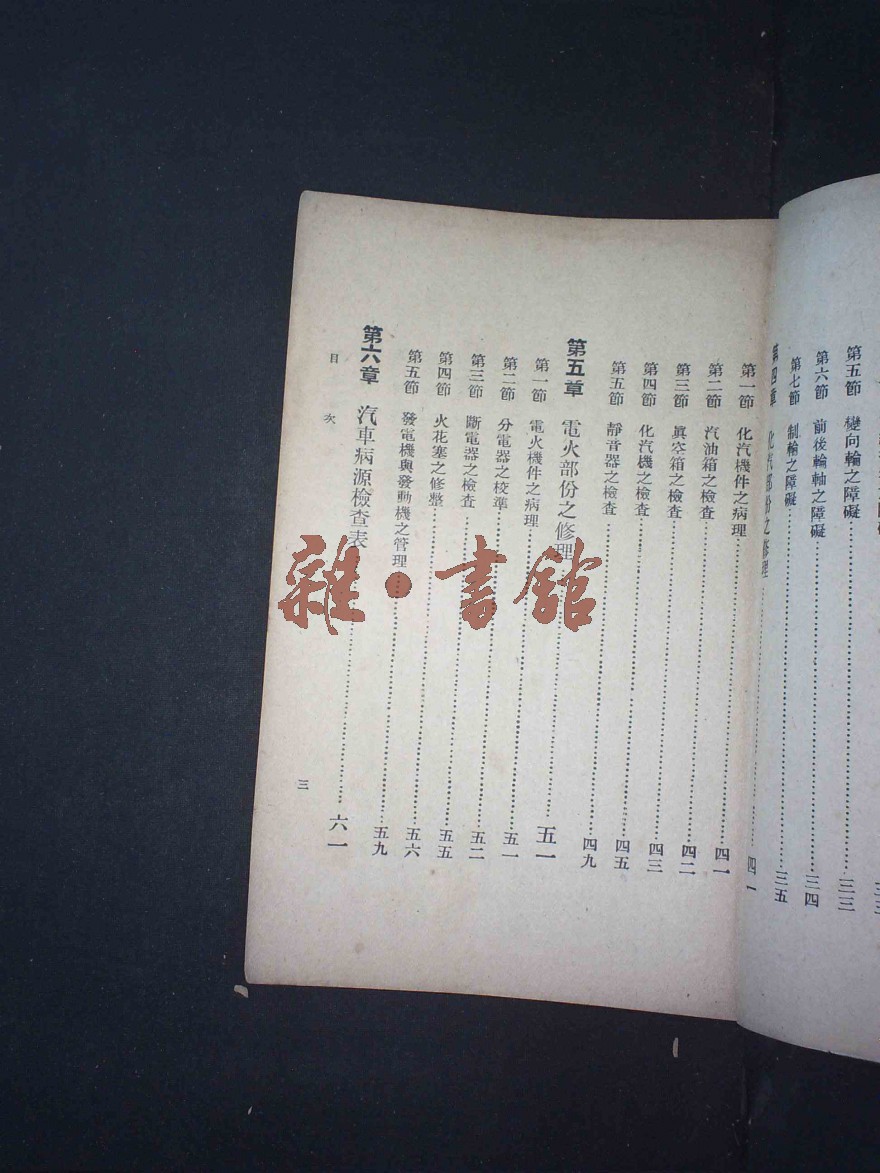 第五節 變向輪之障礙……三三
第六節 前後輪軸之障礙……三四
第七節 制輪之障礙……三五
第四章 化汽部份之修理……四一
第一節 化汽機件之病理……四一
第二節 汽油箱之檢查……四二
第三節 眞空箱之檢查……四三
第四節 化汽機之檢查……四五
第五節 靜音器之檢查……四九
第五章 電火部份之修理……五一
第一節 電火機件之病理……五一
第二節 分電器之校準……五二
第三節 斷電器之檢查……五五
第四節 火花塞之修整……五六
第五節 發電機與發動機之管理……五九
第六章 汽車病源檢查表……六一
目次
三
雜·書館